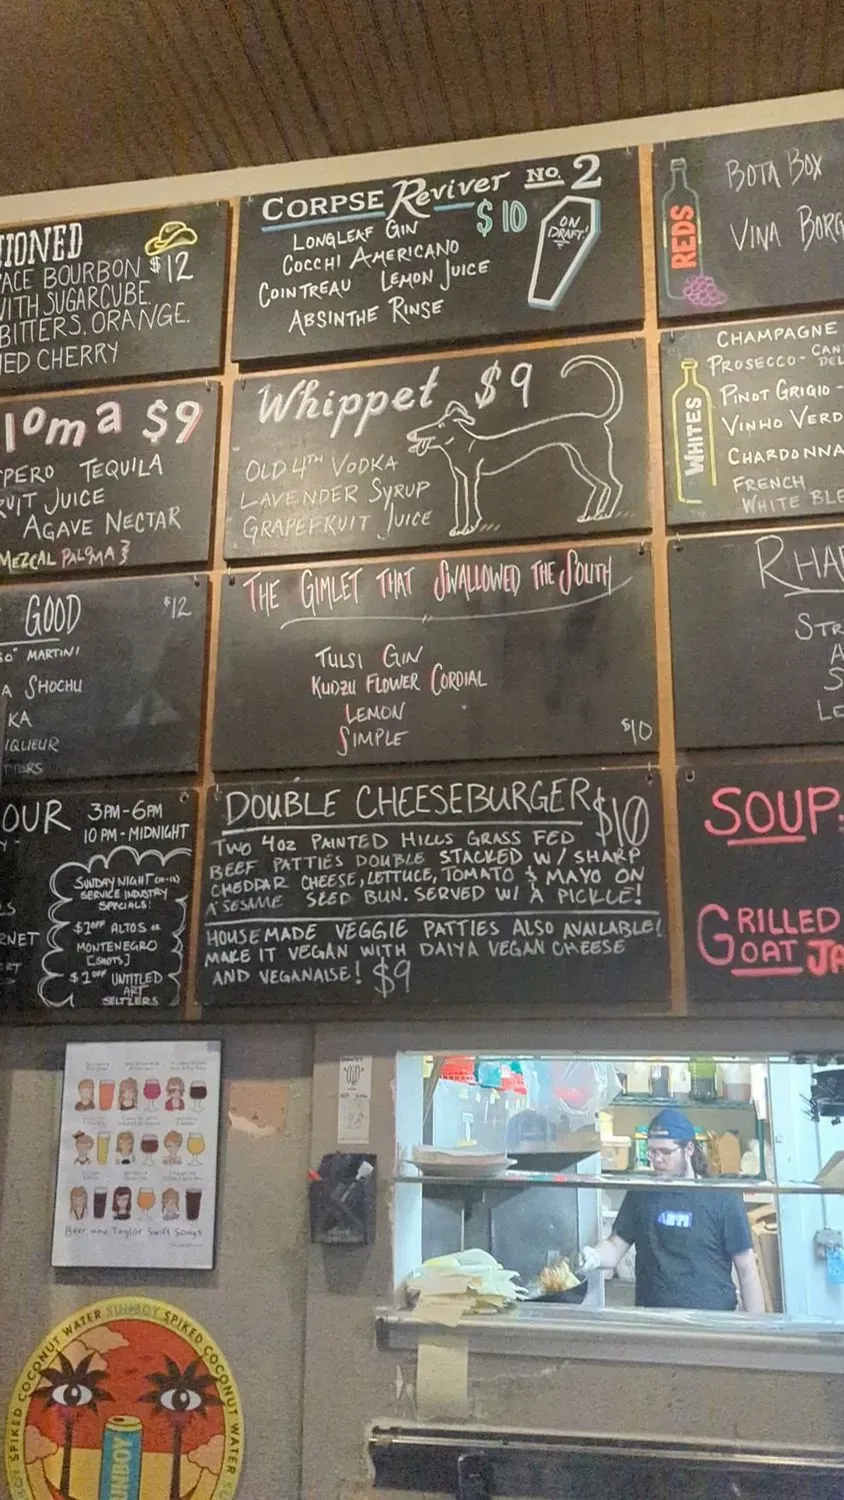 IONED
$12
ACE BOURBON
WITH SUGARCUBE.
BITTERS, ORANGE.
IED CHERRY
CORPSE Reviver No. 2
$10
LONGLEAF GIN
COCCHI AMERICANO
COINTREAU LEMON JUICE
ABSINTHE RINSE
ON
DRAFT!
REDS
BOTA BOX
VINA BORG
loma $9
PERO TEQUILA
RUIT JUICE
AGAVE NECTAR
MEZCAL PALOMA}
Whippet $9
OLD 4TH VODKA
LAVENDER SYRUP
GRAPEFRUIT JUICE
WHITES
CHAMPAGNE
PROSECCO - CAN
DEL
PINOT GRIGIO -
VINHO VERD
CHARDONNA
FRENCH
WHITE BLE
GOOD $12
SO" MARTINI
A SHOCHU
KA
IQUEUR
THE GIMLET THAT SWALLOWED THE SOUTH
TULSI GIN
KUDZU FLOWER CORDIAL
LEMON
SIMPLE
$10
RHA
STR
A
S
LE
OUR 3PM-6PM
10PM-MIDNIGHT
SUNDAY NIGHT
SERVICE INDUSTRY
SPECIALS:
$1 OFF ALTOS OR
MONTENEGRO
[SHOTS]
$1 OFF UNTITLED
ART
SELTZERS
LS
RNET
DOUBLE CHEESEBURGER $10
TWO 4OZ PAINTED HILLS GRASS FED
BEEF PATTIES DOUBLE STACKED W/ SHARP
CHEDDAR CHEESE, LETTUCE, TOMATO & MAYO ON
A SESAME SEED BUN. SERVED W/ A PICKLE!
HOUSEMADE VEGGIE PATTIES ALSO AVAILABLE!
MAKE IT VEGAN WITH DAIYA VEGAN CHEESE
AND VEGANAISE! $9
SOUP:
GRILLED
GOAT JA
Beer and Taylor Swift Songs
SPIKED COCONUT WATER SUNBOY SPIKED COCONUT WATER
SUNBOY